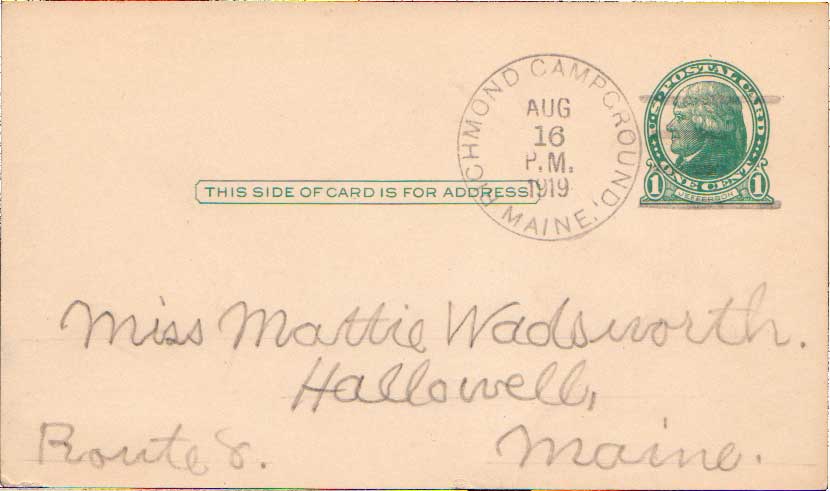 RICHMOND CAMPGROUND, MAINE.
AUG
16
P.M.
1919
U.S. POSTAL CARD
ONE CENT
1 JEFFERSON 1
THIS SIDE OF CARD IS FOR ADDRESS
Miss Mattie Wadsworth.
Hallowell,
Route 8. Maine.